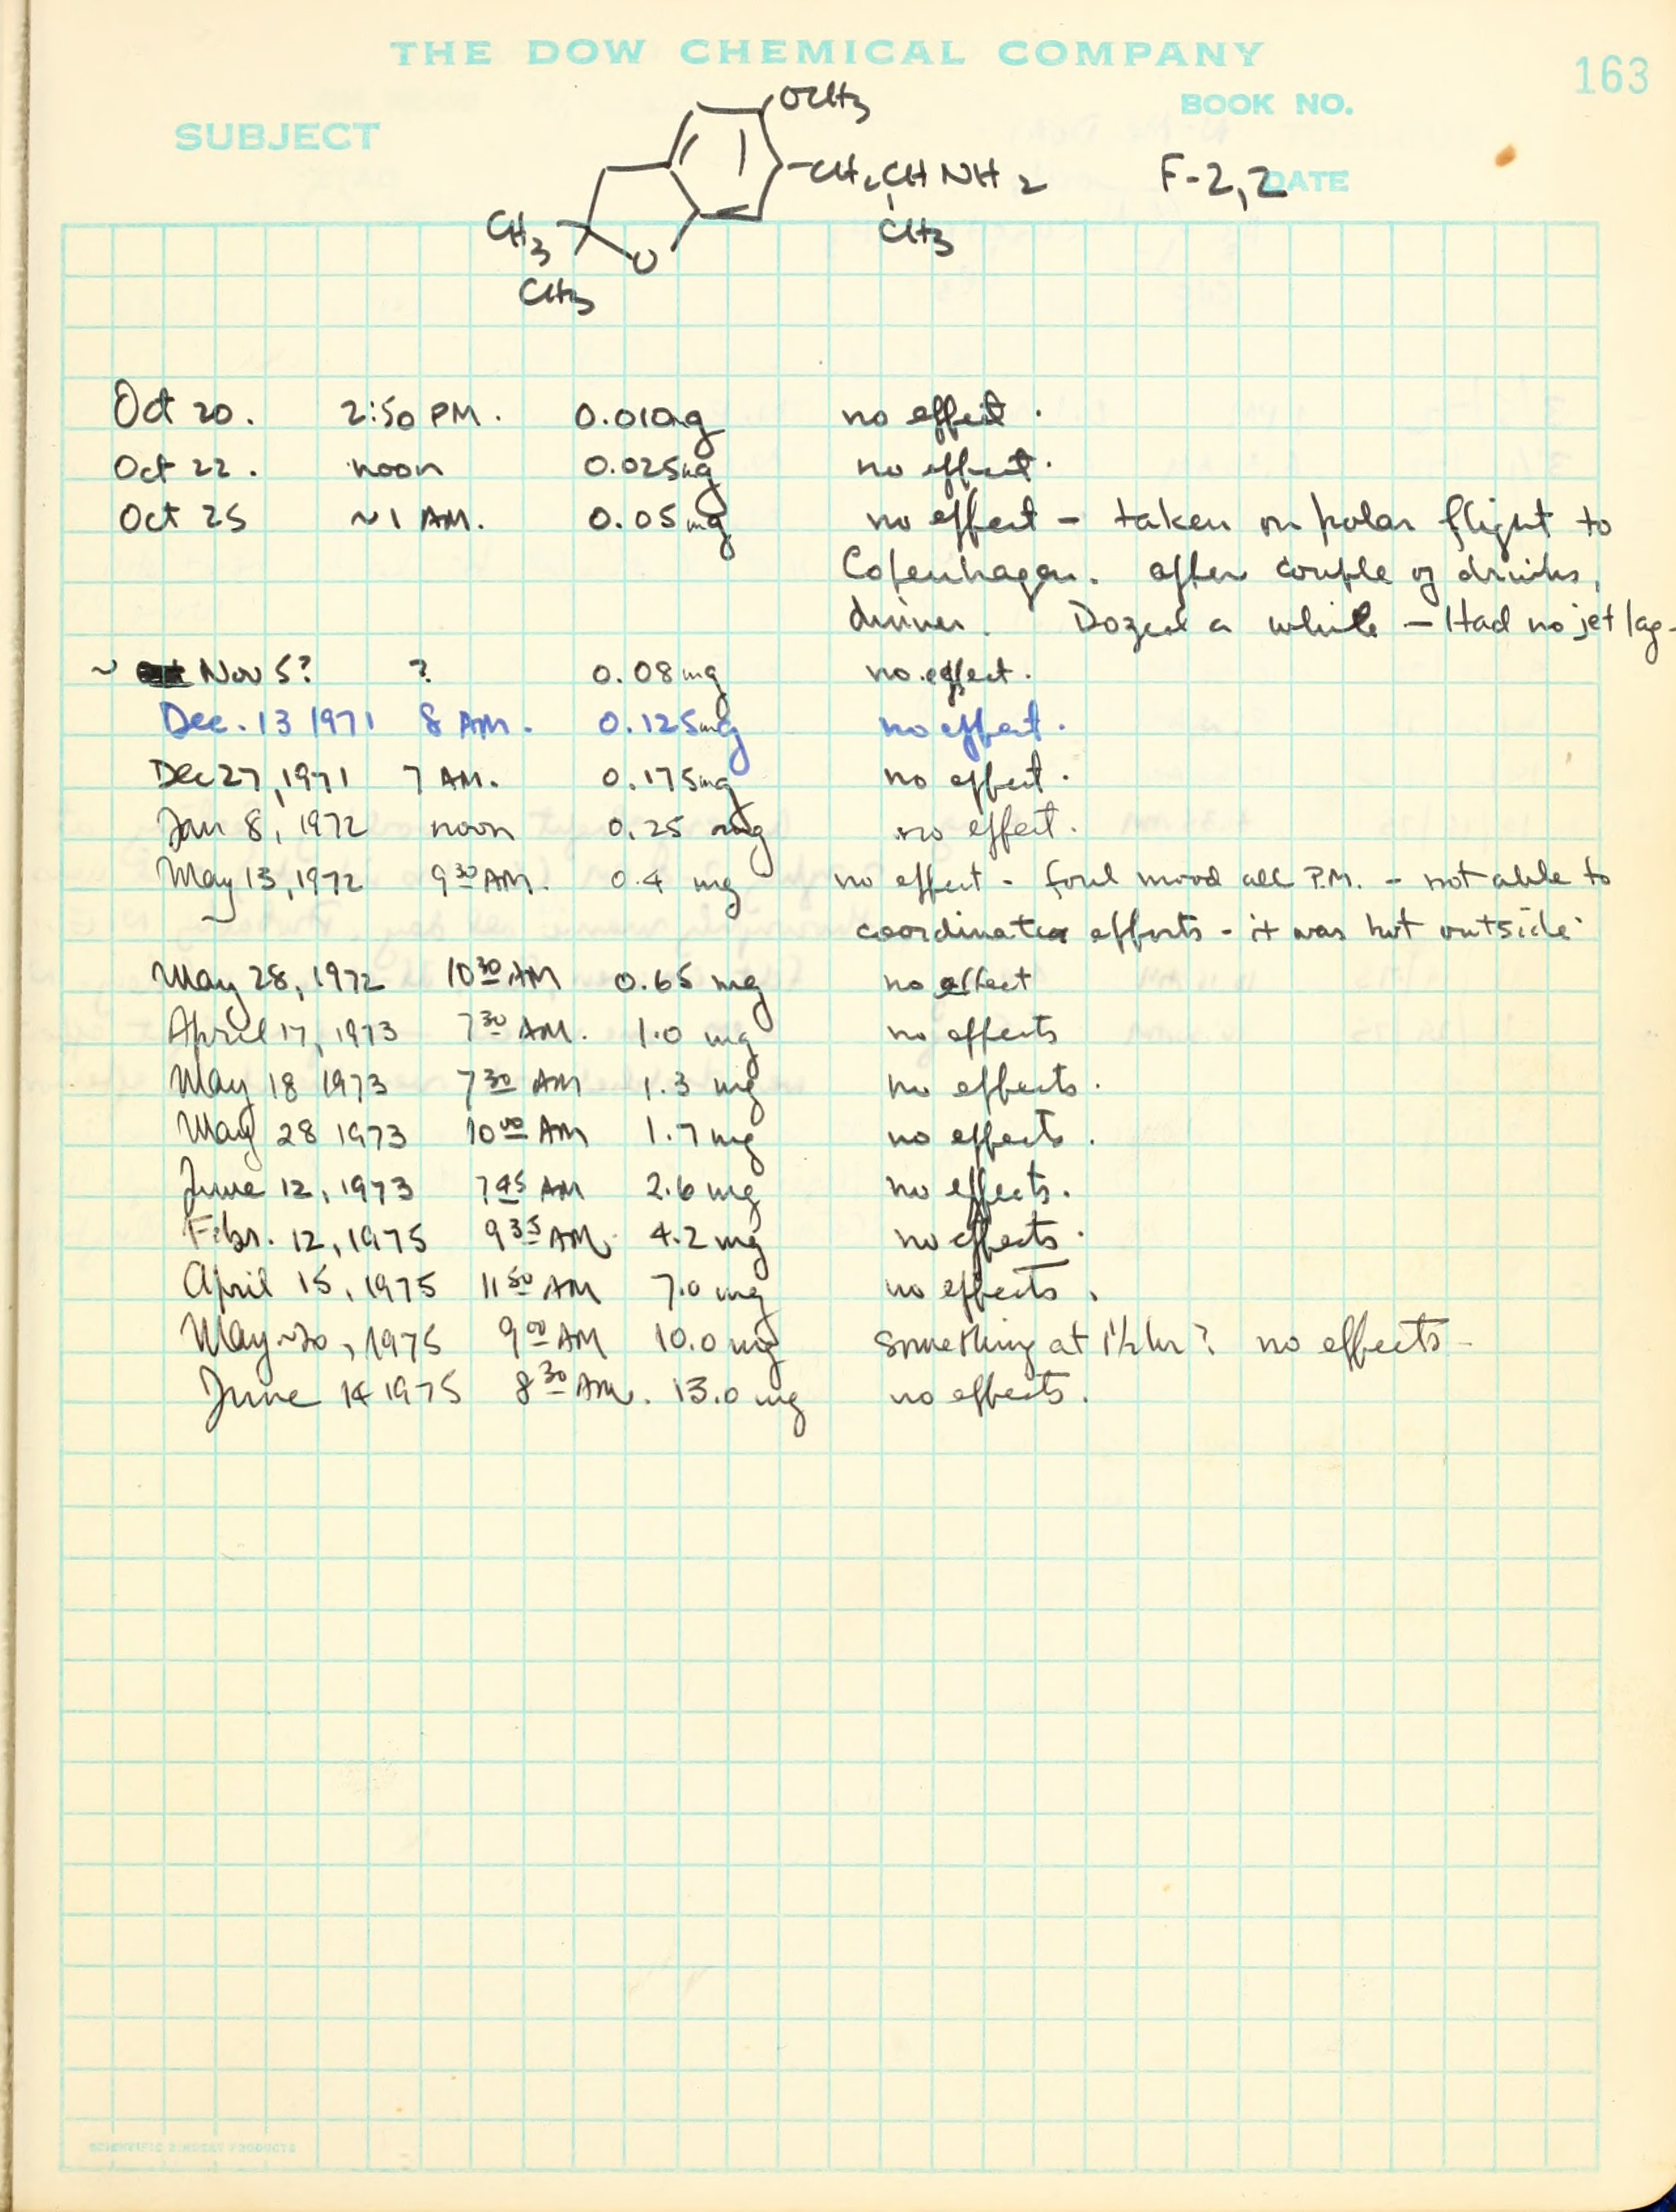 THE DOW CHEMICAL COMPANY
163
BOOK NO.
SUBJECT
OCH3
CH2CHNH2
CH3
F-2,2
DATE
CH3
O
CH3
Oct 20. 2:50 PM. 0.010mg no effect.
Oct 22. noon 0.025mg no effect.
Oct 25 ~1 AM. 0.05mg no effect - taken on polar flight to
Copenhagen. after couple of drinks,
dinner. Dozed a while - Had no jet lag-
~ Nov 5? ? 0.08mg no effect.
Dec. 13 1971 8 AM. 0.125mg no effect.
Dec 27, 1971 7 AM. 0.175mg no effect.
Jan 8, 1972 noon 0.25 mg no effect.
May 13, 1972 9 30 AM. 0.4 mg no effect - foul mood all P.M. - not able to
coordinate efforts - it was hot outside.
May 28, 1972 10 30 AM 0.65 mg no effect
April 17, 1973 7 30 AM. 1.0 mg no effects
May 18 1973 7 30 AM 1.3 mg no effects.
May 28 1973 10 00 AM 1.7 mg no effects.
June 12, 1973 7 45 AM 2.6 mg no effects.
Febr. 12, 1975 9 35 AM. 4.2 mg no effects.
April 15, 1975 11 50 AM 7.0 mg no effects.
May ~20, 1975 9 00 AM 10.0 mg something at 1 1/2 hr? no effects -
June 14 1975 8 30 AM. 13.0 mg no effects.